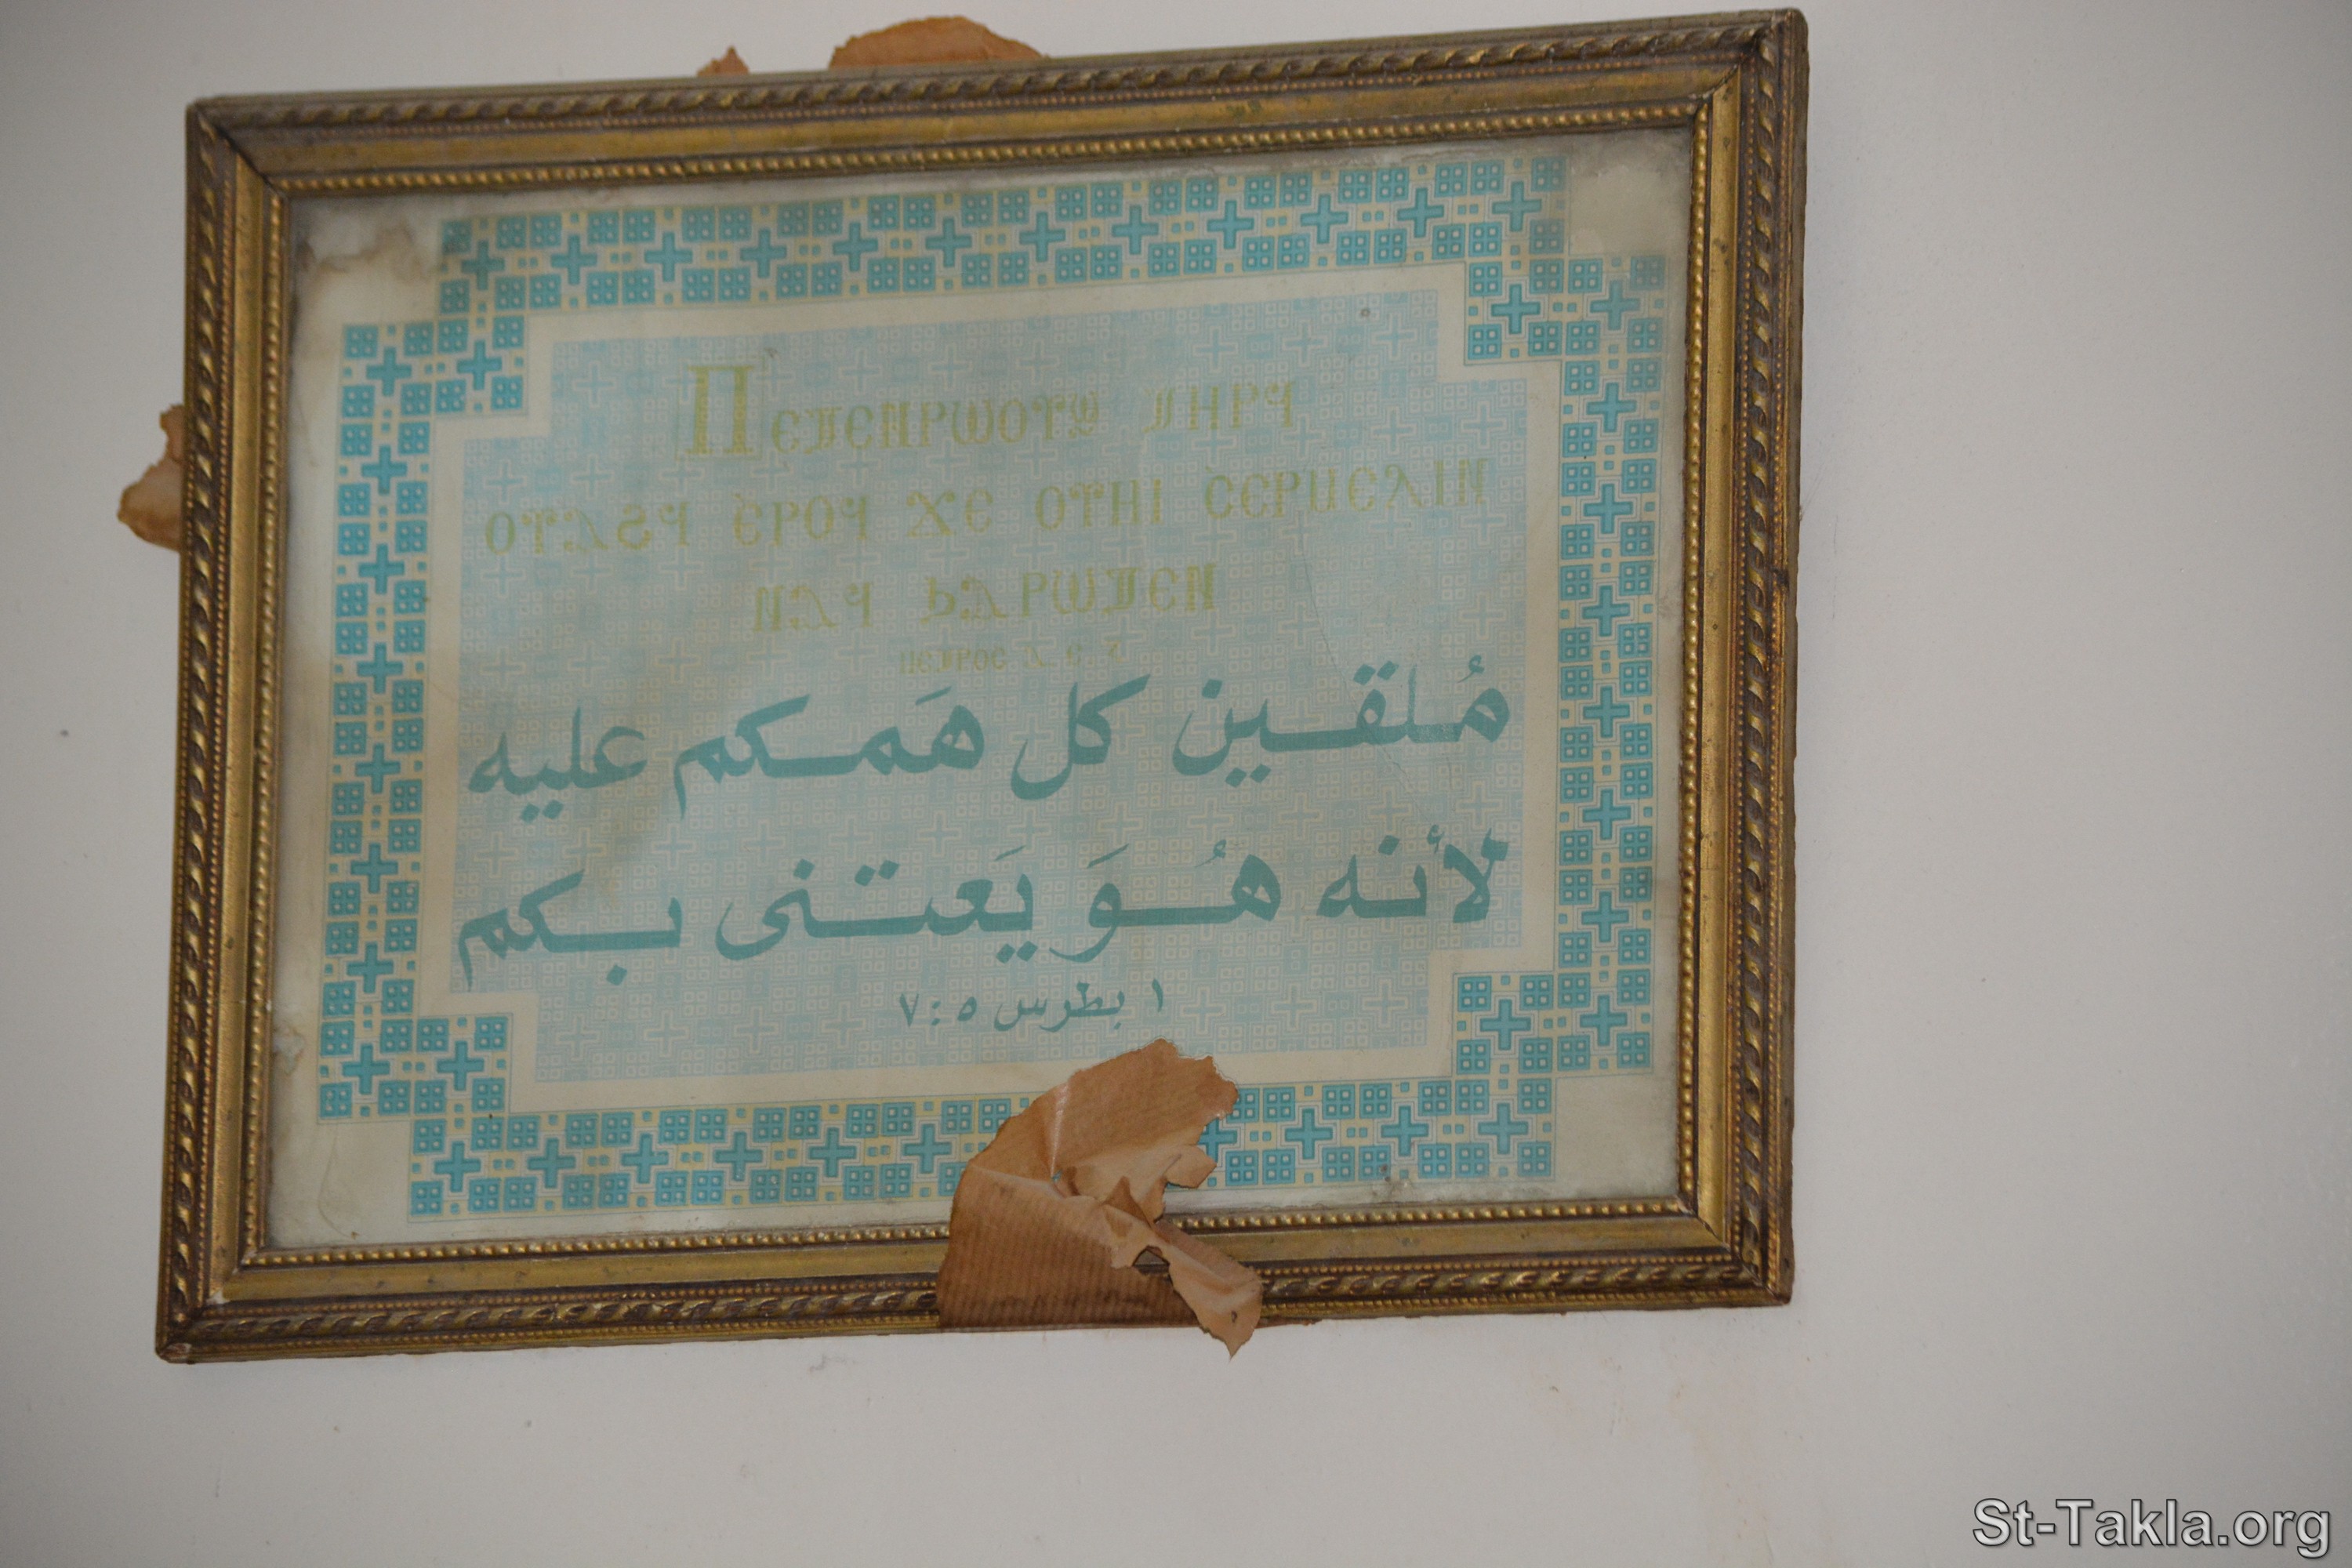 Ⲡⲉⲧⲉⲛⲣⲱⲟⲩϣ ⲧⲏⲣϥ
ⲟⲩⲁϩϥ ⲉ̀ⲣⲟϥ ϫⲉ ⲟⲩⲏⲓ ⲥ̀ⲉⲣⲙⲉⲗⲓⲛ
ⲛⲁϥ ϧⲁⲣⲱⲧⲉⲛ
ⲡⲉⲧⲣⲟⲥ ⲁ
مُلقين كل هَمكم عليه
لأنه هُوَ يَعتنى بكم
١ بطرس ٥ : ٧
St-Takla.org